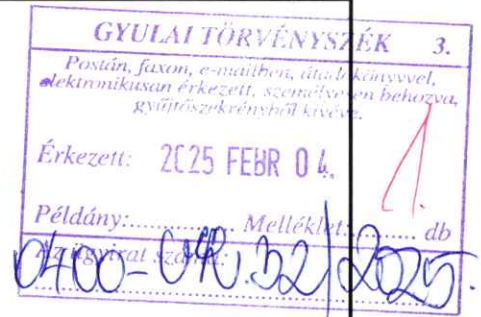 GYULAI TÖRVÉNYSZÉK 3.
Postán, faxon, e-mailben, átadókönyvvel,
elektronikusan érkezett, személyesen behozva,
gyűjtőszekrényből kivéve.
Érkezett: 2025 FEBR 04.
1.
Példány:.............. Melléklet:.......... db
Az ügyirat száma: